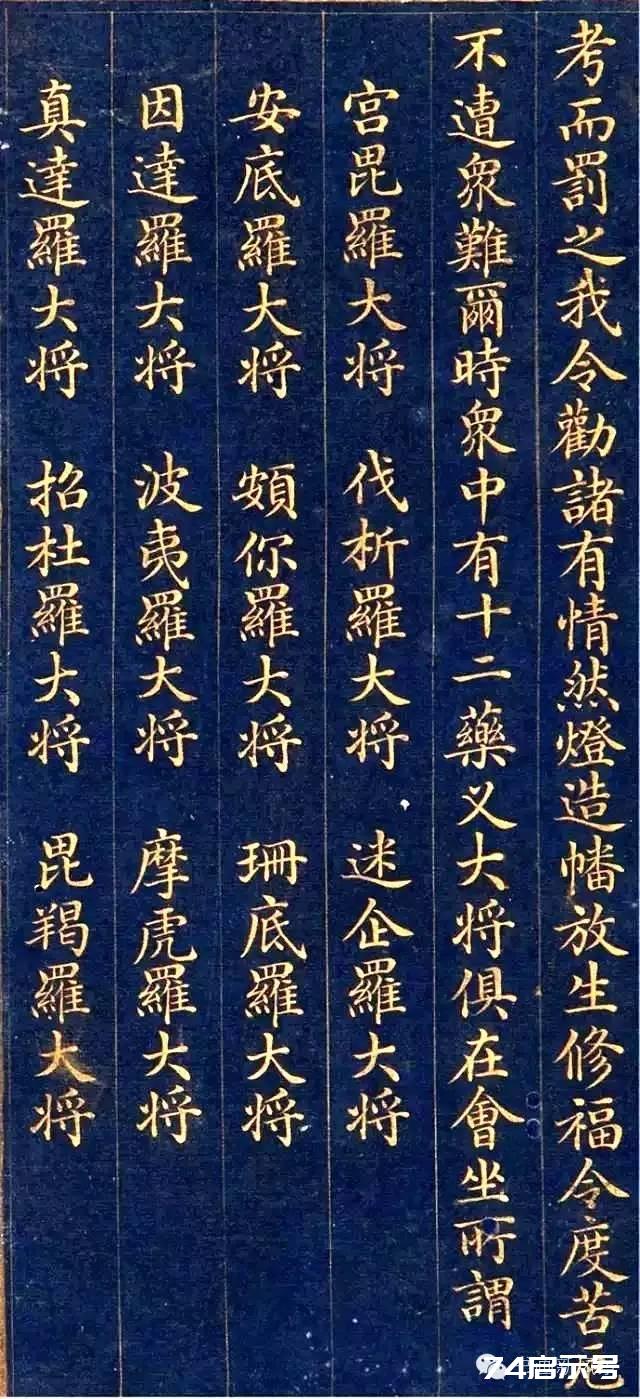 考而罰之我令勸諸有情然燈造幡放生修福令度苦厄
不遭眾難爾時眾中有十二藥叉大将俱在會坐所謂
宮毘羅大将 伐折羅大将 迷企羅大将
安底羅大将 頞你羅大将 珊底羅大将
因達羅大将 波夷羅大将 摩虎羅大将
真達羅大将 招杜羅大将 毘羯羅大将